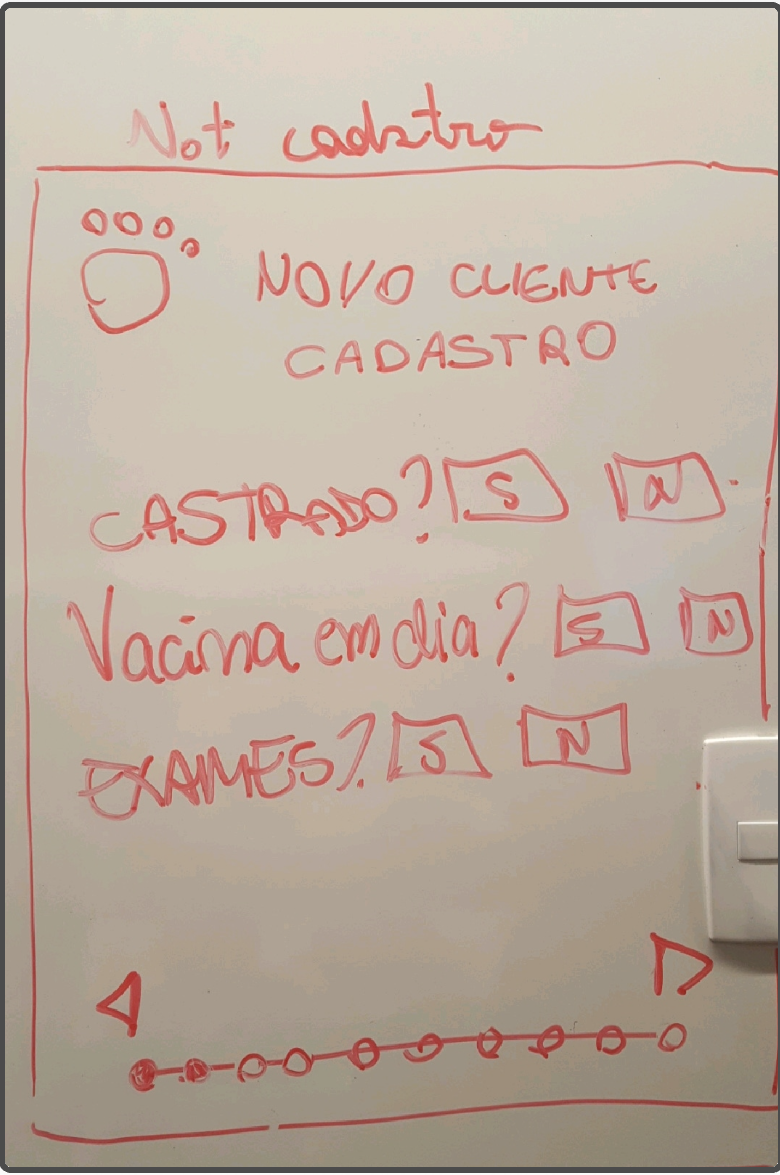 Not cadastro
NOVO CLIENTE
CADASTRO
CASTRADO? S N
Vacina em dia? S N
EXAMES? S N